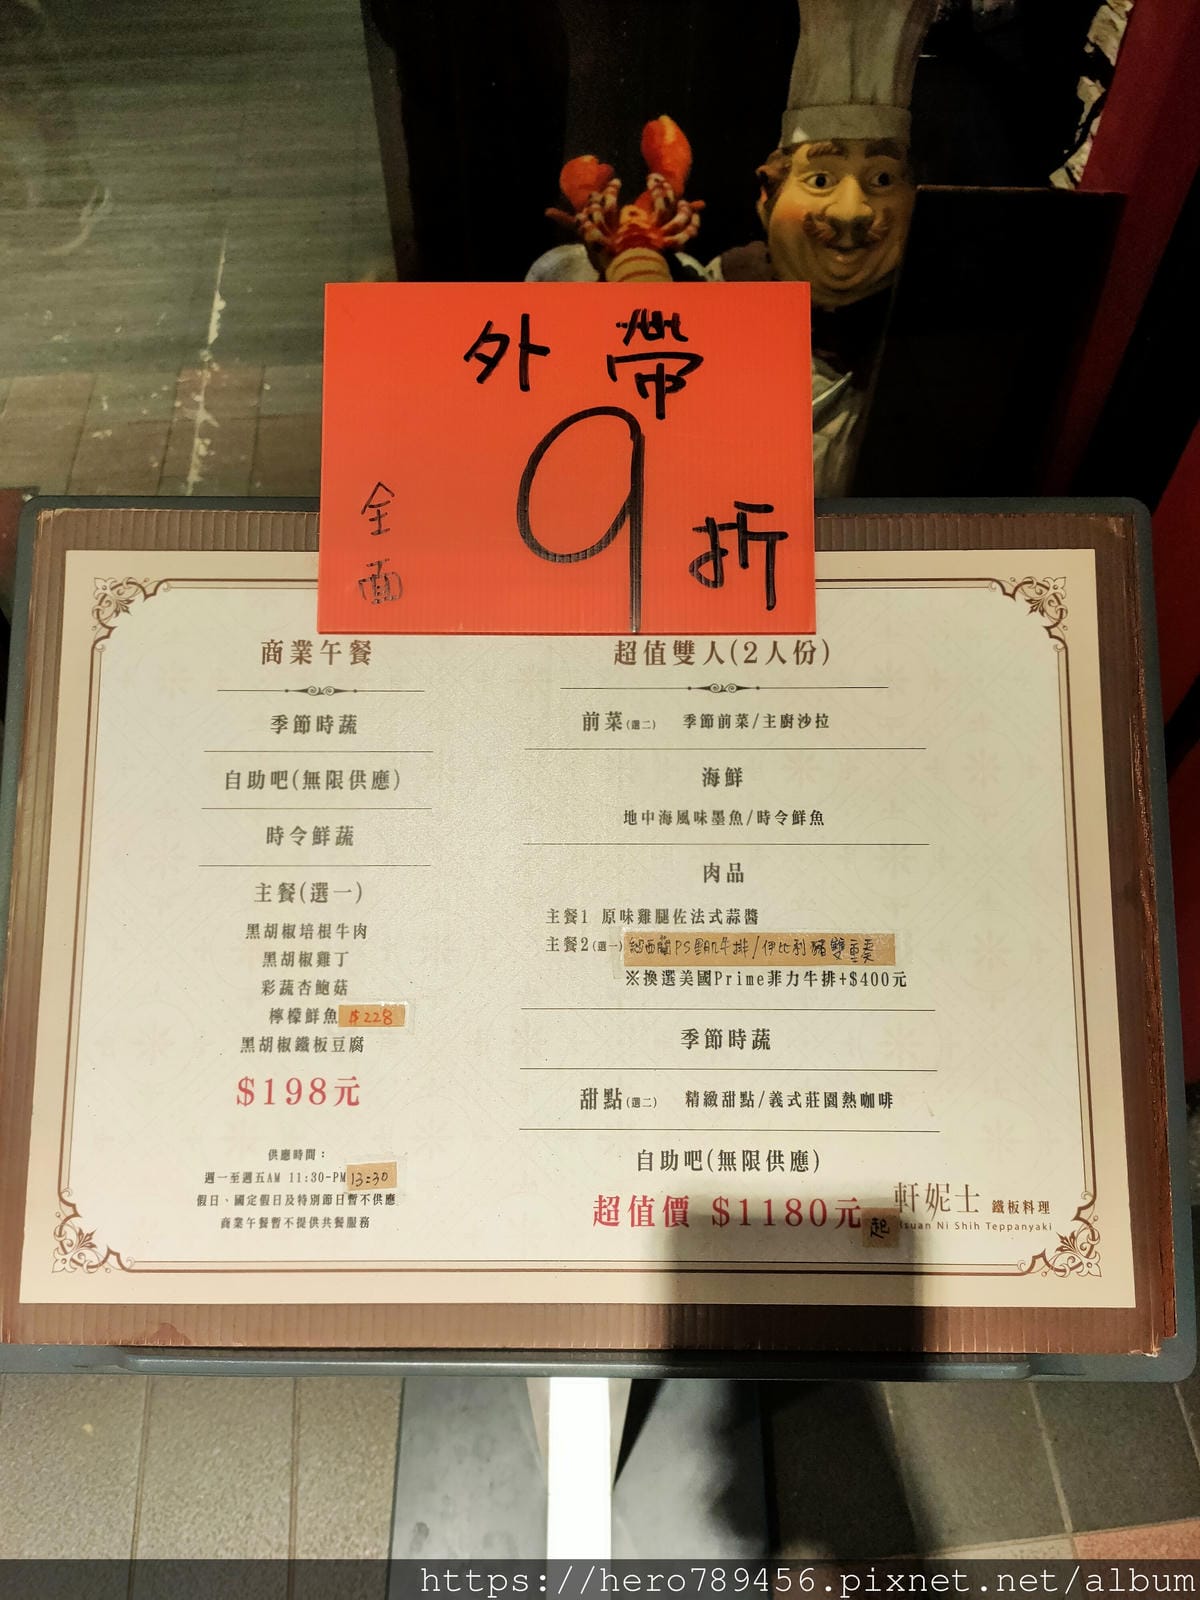 外帶
9折
全面
商業午餐
季節時蔬
自助吧(無限供應)
時令鮮蔬
主餐(選一)
黑胡椒培根牛肉
黑胡椒雞丁
彩蔬杏鮑菇
檸檬鮮魚 $228
黑胡椒鐵板豆腐
$198元
供應時間：
週一至週五AM 11:30-PM 13:30
假日、國定假日及特別節日暫不供應
商業午餐暫不提供共餐服務
超值雙人(2人份)
前菜(選二) 季節前菜/主廚沙拉
海鮮
地中海風味墨魚/時令鮮魚
肉品
主餐1 原味雞腿佐法式蒜醬
主餐2(選一) 紐西蘭PS肋眼牛排/伊比利豬雙重奏
※換選美國Prime菲力牛排+$400元
季節時蔬
甜點(選二) 精緻甜點/義式莊園熱咖啡
自助吧(無限供應)
超值價 $1180元起
軒妮士 鐵板料理
Hsuan Ni Shih Teppanyaki
https://hero789456.pixnet.net/album